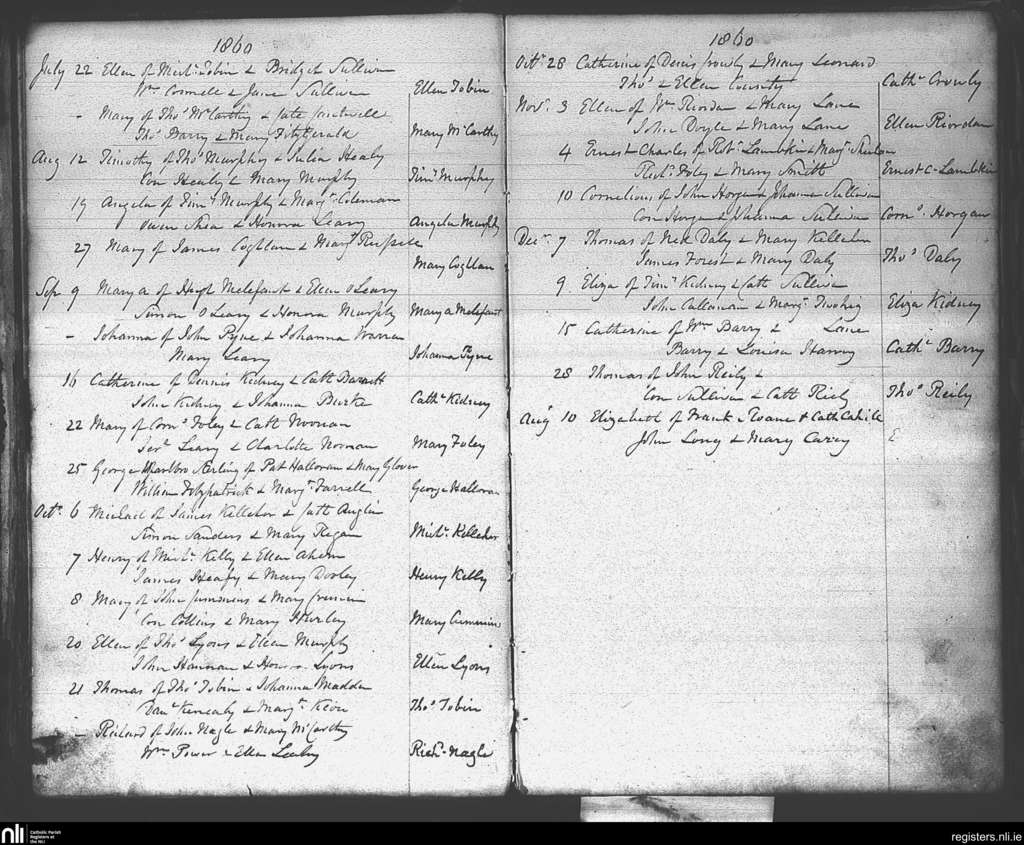 1860
July 22 Ellen of Michl Tobin & Bridget Sullivan
Wm Connell & Jane Sullivan
Ellen Tobin
- Mary of Thos McCarthy & Cate
Thos Barry & Mary Fitzgerald
Mary McCarthy
Aug 12 Timothy of Thos Murphy & Julia Healy
Con Healy & Mary Murphy
Timy Murphy
19 Angela of Timy Murphy & Margt Coleman
Owen Shea & Honora Leary
Angela Murphy
27 Mary of James Coghlan & Margt
Mary Coghlan
Sep 9 Marya of Hugh Melefant & Ellen OLeary
Simon OLeary & Honora Murphy
Marya Melefant
- Johanna of John Pyne & Johanna Warren
Mary Leary
Johanna Pyne
16 Catherine of Dennis Kidney & Cath Barrett
John Kidney & Johanna Burke
Cathe Kidney
22 Mary of Corns Foley & Cath Noonan
Jer Leary & Charlotte Noonan
Mary Foley
25 George Marlbro Sterling of Pat Halloran & Mary Glover
William Fitzpatrick & Margt Farrell
George Halloran
Octr 6 Michael of James Kelleher & Cath Anglin
Simon Sanders & Mary Regan
Michl Kelleher
7 Henry of Michl Kelly & Ellen Ahern
James Heafy & Mary Dooley
Henry Kelly
8 Mary of John Cummins & Mary Cremin
Con Collins & Mary Hurley
Mary Cummins
20 Ellen of Thos Lyons & Ellen Murphy
John Hannan & Honora Lyons
Ellen Lyons
21 Thomas of Thos Tobin & Johanna Madden
Danl Kenealy & Margt Keon
Thos Tobin
- Richard of John Nagle & Mary McCarthy
Wm Power & Ellen Leahy
Richd Nagle
1860
Octr 28 Catherine of Denis Crowly & Mary Leonard
Thos & Ellen
Cathe Crowly
Novr 3 Ellen of Wm Riordan & Mary Lane
John Doyle & Mary Lane
Ellen Riordan
4 Ernest Charles of Robt Lambkin & Margt
Richd Foley & Mary Smith
Ernest C. Lambkin
10 Cornelious of John Horgan & Johanna Sullivan
Con Horgan & Johanna Sullivan
Corns Horgan
Decr 7 Thomas of Mick Daly & Mary Kelleher
James Forest & Mary Daly
Thos Daly
9 Eliza of Timy Kidney & Cath Sullivan
John Callanan & Margt Twohig
Eliza Kidney
15 Catherine of Wm Barry & Lane
Barry & Louisa
Cathe Barry
28 Thomas of John Reily &
Con Sullivan & Cath Riely
Thos Reily
Aug 10 Elizabeth of Frank & Cath Cahill
John Long & Mary Carey
E
nli Catholic Parish
Registers at
the NLI
registers.nli.ie